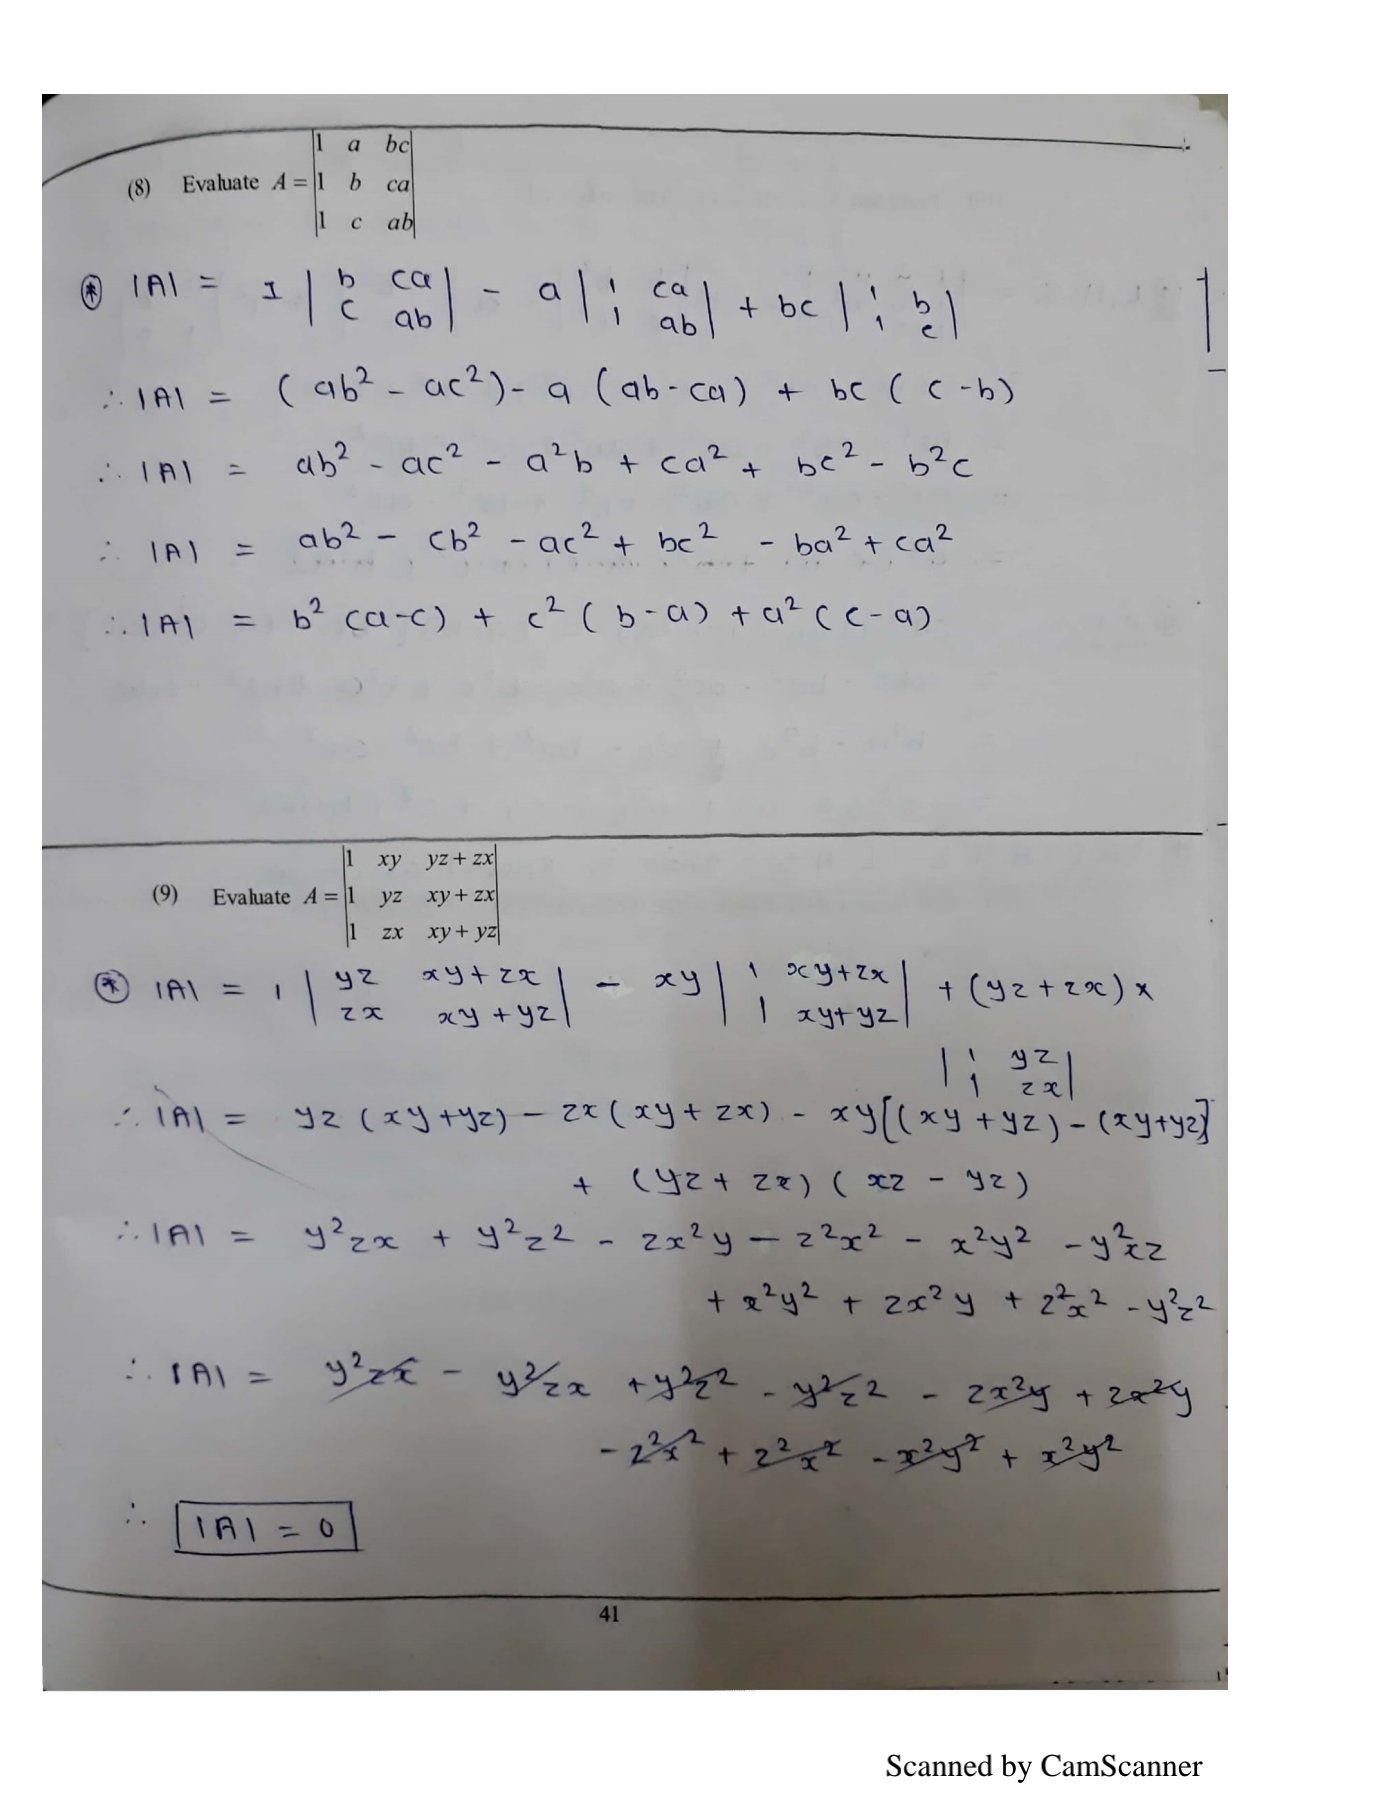 (8) Evaluate A = |1 a bc|
|1 b ca|
|1 c ab|
⊛ |A| = 1 |b ca| - a |1 ca| + bc |1 b|
|c ab| |1 ab| |1 c|
∴ |A| = (ab² - ac²) - a (ab - ca) + bc (c - b)
∴ |A| = ab² - ac² - a²b + ca² + bc² - b²c
∴ |A| = ab² - cb² - ac² + bc² - ba² + ca²
∴ |A| = b² (a-c) + c² (b-a) + a² (c-a)
(9) Evaluate A = |1 xy yz + zx|
|1 yz xy + zx|
|1 zx xy + yz|
⊛ |A| = 1 |yz xy+zx| - xy |1 xy+zx| + (yz+zx) ×
|zx xy+yz| |1 xy+yz|
|1 yz|
|1 zx|
∴ |A| = yz (xy+yz) - zx (xy+zx) - xy[(xy+yz) - (xy+yz)]
+ (yz + zx) (xz - yz)
∴ |A| = y²zx + y²z² - zx²y - z²x² - x²y² - y²xz
+ x²y² + zx²y + z²x² - y²z²
∴ |A| = y²zx - y²zx + y²z² - y²z² - zx²y + zx²y
- z²x² + z²x² - x²y² + x²y²
∴ |A| = 0
41
Scanned by CamScanner